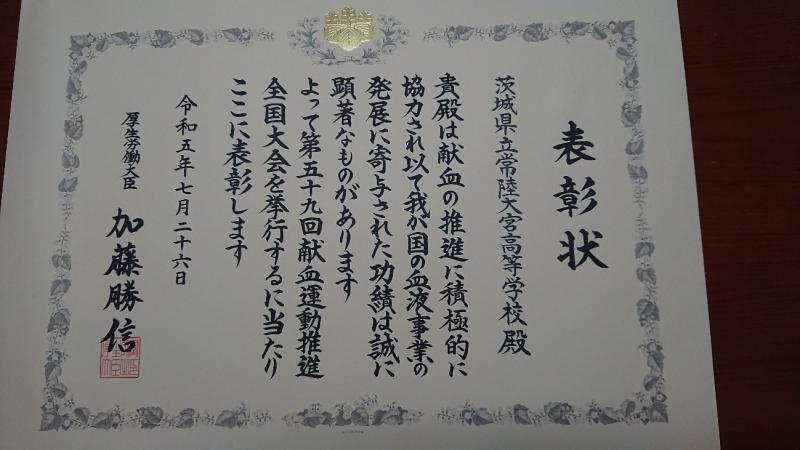 表彰状
茨城県立常陸大宮高等学校 殿
貴殿は献血の推進に積極的に
協力され以て我が国の血液事業の
発展に寄与された功績は誠に
顕著なものがあります
よって第五十九回献血運動推進
全国大会を挙行するに当たり
ここに表彰します
令和五年七月二十六日
厚生労働大臣 加藤勝信